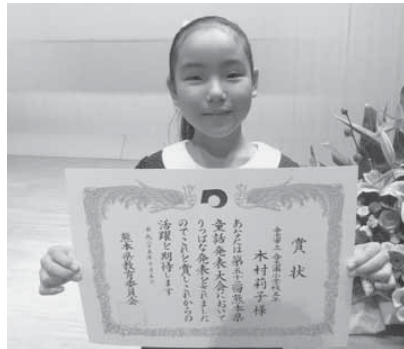 賞状
木村莉子様
あなたは第五十回熊本県
童話発表大会において
りっぱな発表をされました
のでこれを賞しこれからの
活躍を期待します
熊本県教育委員会